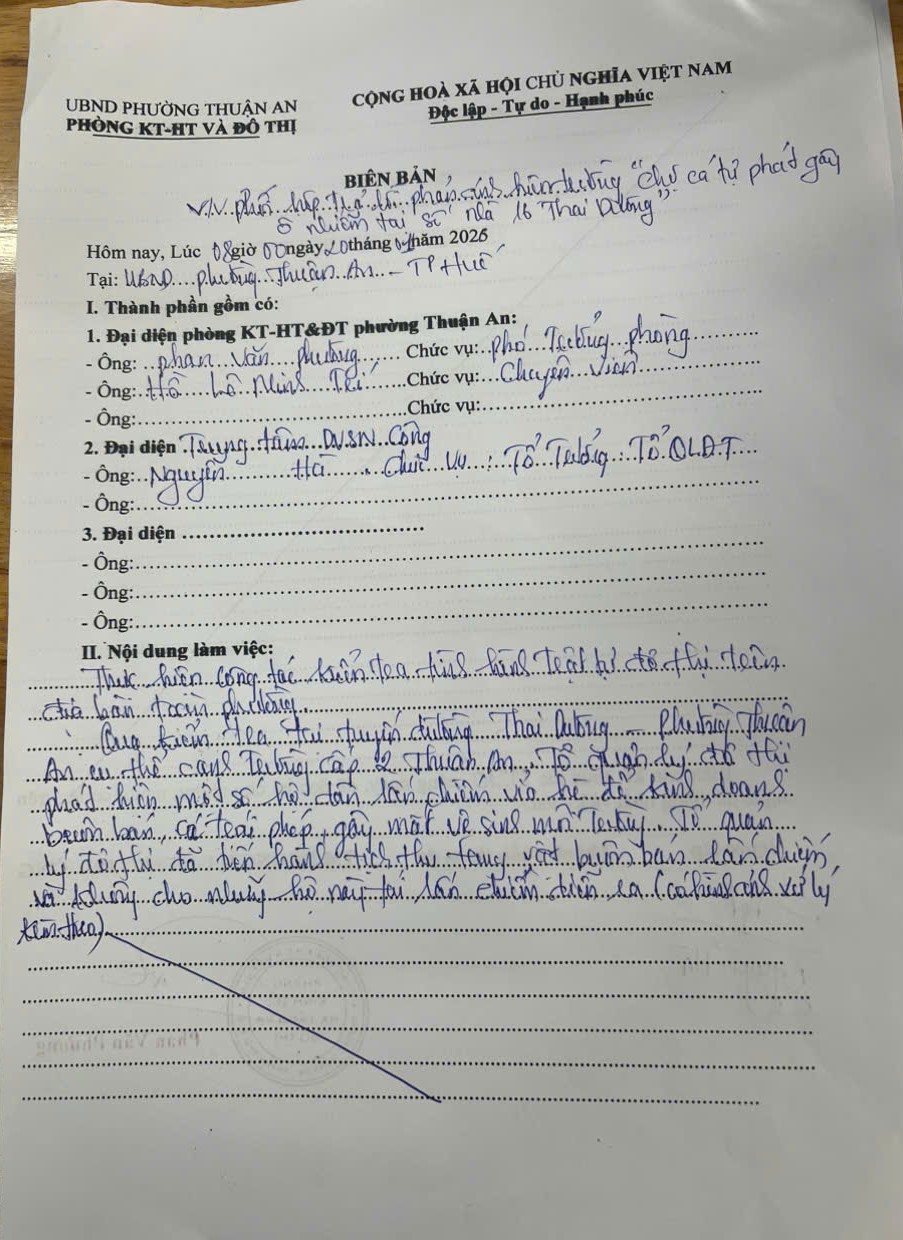 UBND PHƯỜNG THUẬN AN
PHÒNG KT-HT VÀ ĐÔ THỊ
CỘNG HOÀ XÃ HỘI CHỦ NGHĨA VIỆT NAM
Độc lập - Tự do - Hạnh phúc
BIÊN BẢN
V.v. phối hợp trả lời phản ánh hiện trường "chợ cá tự phát gây
ô nhiễm tại số nhà 16 Thai Dương"
Hôm nay, Lúc 08 giờ 00 ngày 20 tháng năm 2026
Tại: UBND phường Thuận An - TP Huế
I. Thành phần gồm có:
1. Đại diện phòng KT-HT&ĐT phường Thuận An:
- Ông: phan Văn phường Chức vụ: phó Trưởng phòng
- Ông: Hồ Lê Minh Trí Chức vụ: Chuyên viên
- Ông: Chức vụ:
2. Đại diện Trung tâm DVSN Công
- Ông: Nguyễn Hà Chức vụ: Tổ Trưởng Tổ QLĐT
- Ông:
3. Đại diện
- Ông:
- Ông:
- Ông:
II. Nội dung làm việc:
Thực hiện công tác kiểm tra tình hình trật tự đô thị trên
địa bàn toàn phường
Qua kiểm tra tại tuyến đường Thai Dương - Phường Thuận
An cụ thể cạnh Trường cấp 2 Thuận An, Tổ quản lý đô thị
phát hiện một số hộ dân lấn chiếm vỉa hè để kinh doanh
buôn bán, cá trái phép, gây mất vệ sinh môi Trường. Tổ quản
lý đô thị đã tiến hành tịch thu tang vật buôn bán lấn chiếm
và không cho những hộ này tái lấn chiếm diễn ra (có hình ảnh xử lý
kèm theo)
Phan Văn Phường